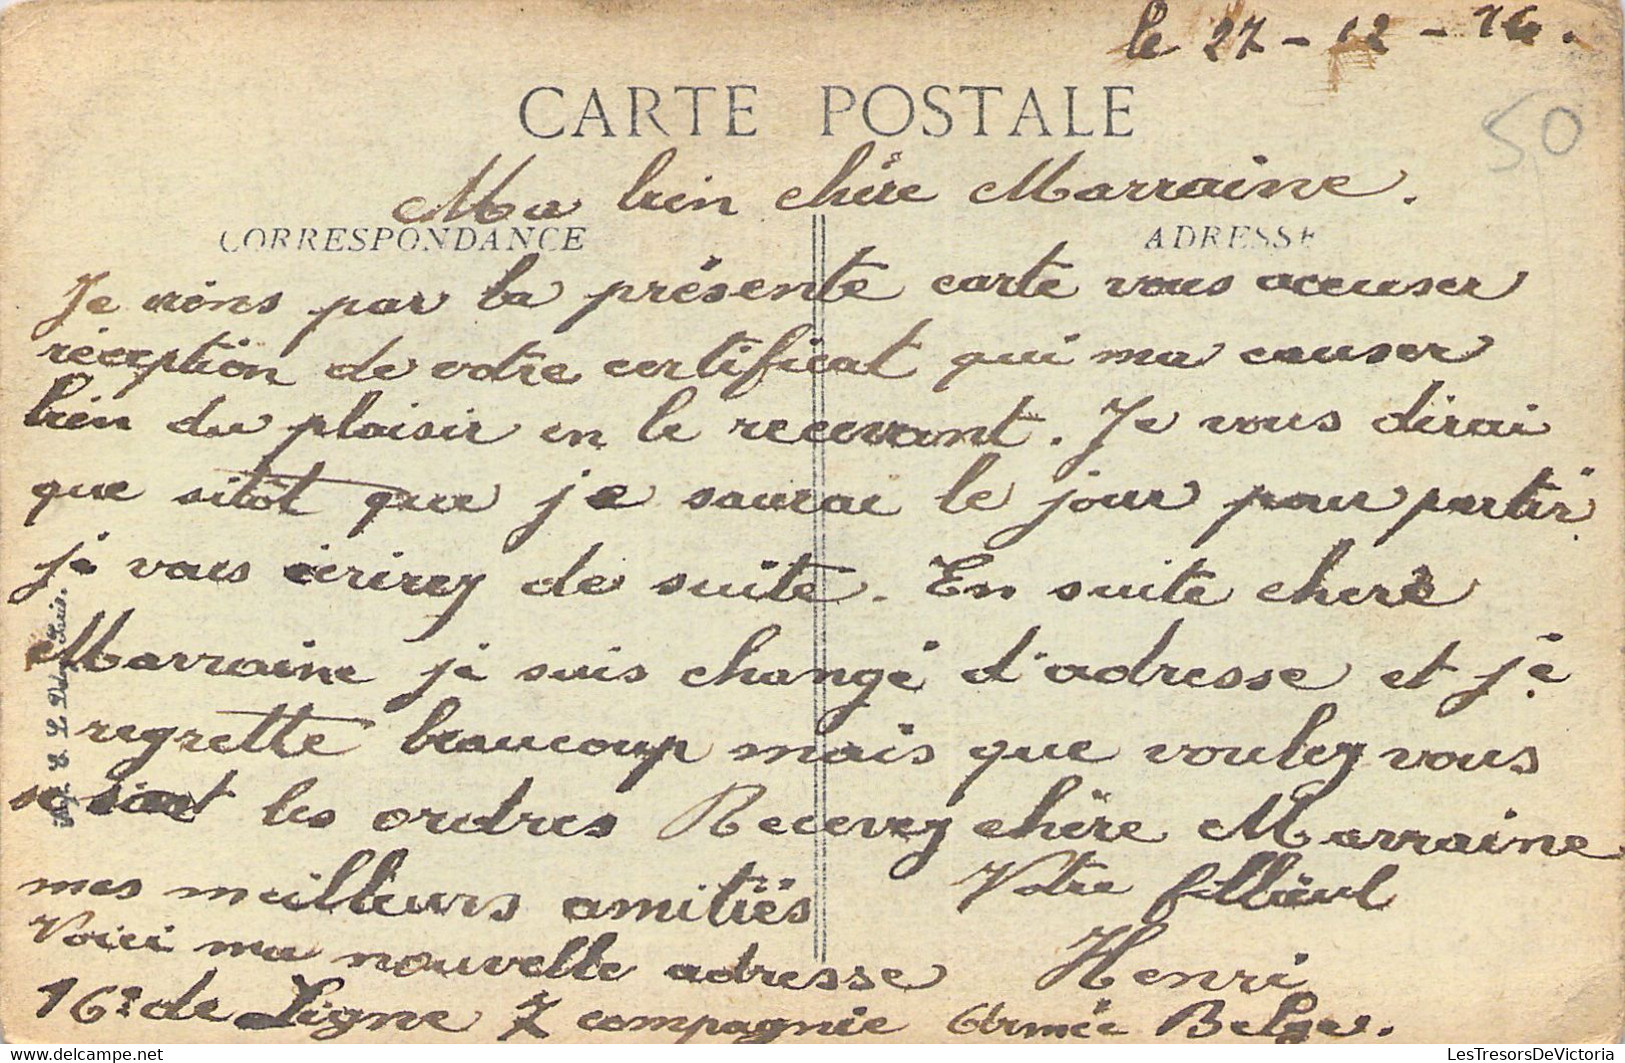 le 27 - 12 - 16.
50
CARTE POSTALE
Ma bien chère Marraine.
CORRESPONDANCE
ADRESSE
Je viens par la présente carte vous accuser
réception de votre certificat qui ma causer
bien du plaisir en le recevant. Je vous dirai
que sitôt que je saurai le jour pour partir
je vais écrirez de suite. En suite chere
Marraine je suis changé d'adresse et je
regrette beaucoup mais que voulez vous
se sont les ordres Recevez chère Marraine
mes meilleurs amitiés Votre filleul
Voici ma nouvelle adresse Henri
16e de Ligne 7 compagnie Armée Belge.
Paris.
LesTresorsDeVictoria